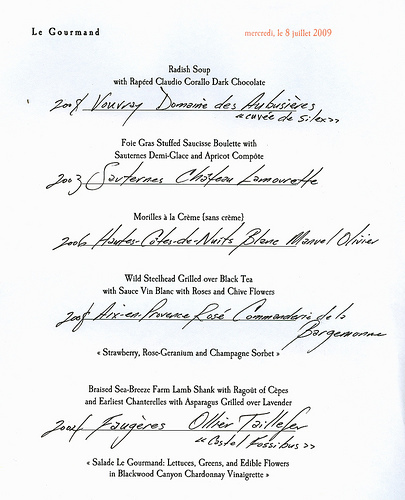 Le Gourmand
mercredi, le 8 juillet 2009
Radish Soup
with Rapéed Claudio Corallo Dark Chocolate
2008 Vouvray Domaine des Aubusières
«cuvée de Silex»
Foie Gras Stuffed Saucisse Boulette with
Sauternes Demi-Glace and Apricot Compôte
2003 Sauternes Château Lamourette
Morilles à la Crème {sans crème}
2006 Hautes-Côtes-de-Nuits Blanc Manuel Olivier
Wild Steelhead Grilled over Black Tea
with Sauce Vin Blanc with Roses and Chive Flowers
2008 Aix-en-Provence Rosé Commanderie de la
Bargemonne
« Strawberry, Rose-Geranium and Champagne Sorbet »
Braised Sea-Breeze Farm Lamb Shank with Ragoût of Cèpes
and Earliest Chanterelles with Asparagus Grilled over Lavender
Faugères Ollier Taillefer
«Castel Fossibus»
« Salade Le Gourmand: Lettuces, Greens, and Edible Flowers
in Blackwood Canyon Chardonnay Vinaigrette »